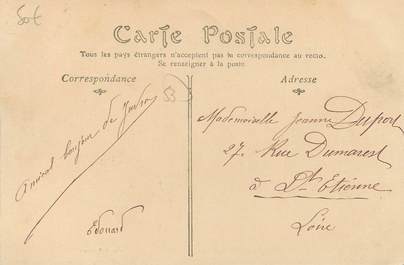 50€
Carte Postale
Tous les pays étrangers n'acceptent pas la correspondance au recto.
Se renseigner à la poste.
Correspondance
Adresse
Amical bonjour de
Edouard
Mademoiselle Jeanne Duport
27. Rue Dumarest
à St Etienne
Loire